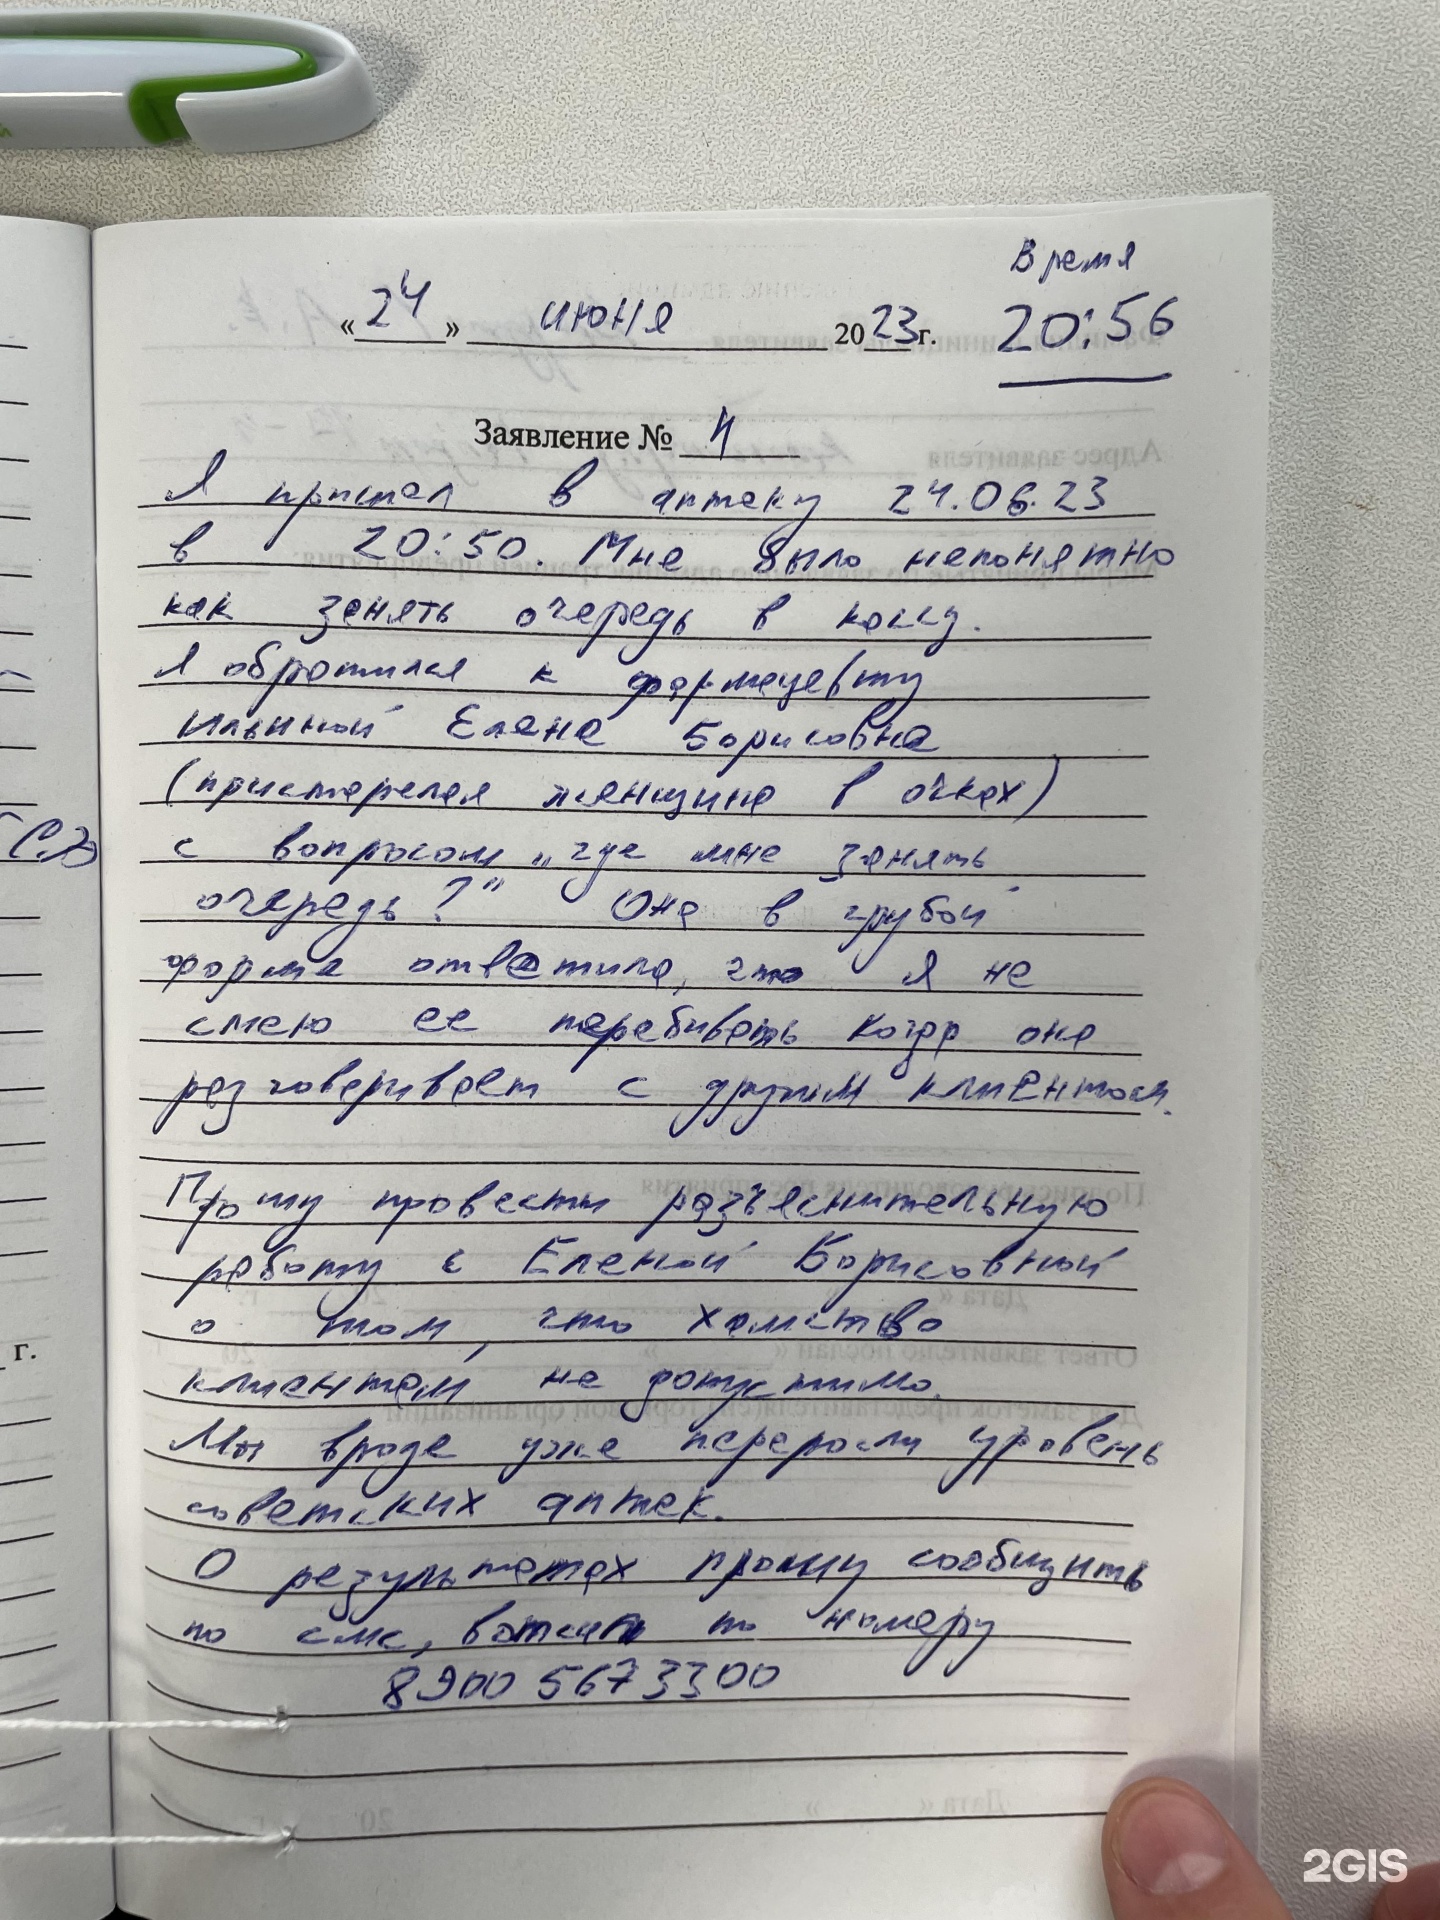 Время
« 24 » июня 2023г. 20:56
Заявление № 4
Я пришел в аптеку 24.06.23
в 20:50. Мне было непонятно
как занять очередь в кассу.
Я обратился к фармацевту
Ильиной Елене Борисовне
(пристарелая женщина в очках)
с вопросом „где мне занять
очередь?" Она в грубой
форме ответила, что я не
смею ее перебивать когда она
разговаривает с другим клиентом.
Прошу провести разъяснительную
работу с Еленой Борисовной
о том, что хамство
клиентам не допустимо.
Мы вроде уже переросли уровень
советских аптек.
О результатах прошу сообщить
по смс, ватсап по номеру
8900 5673300
г.
2GIS